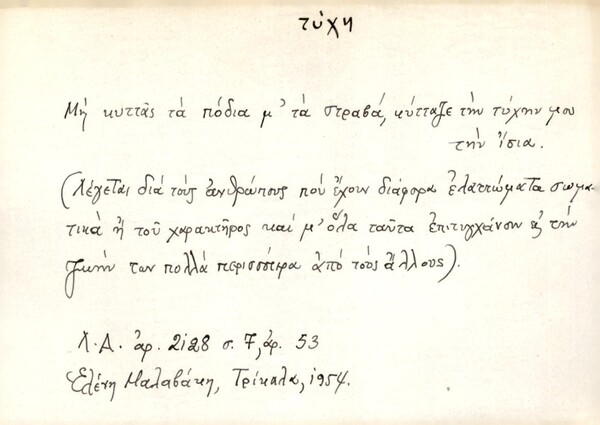 τύχη
Μή κυττᾶς τά πόδια μ' τά στραβά, κύτταξε τήν τύχην μου
τήν ἴσια.
(Λέγεται διά τούς ἀνθρώπους πού ἔχουν διάφορα ἐλαττώματα σωμα-
τικά ἤ τοῦ χαρακτῆρος καί μ' ὅλα ταῦτα ἐπιτυγχάνουν εἰς τήν
ζωήν των πολλά περισσότερα ἀπό τούς ἄλλους).
Λ.Α. ἀρ. 2128 σ. 7, ἀρ. 53
Ἑλένη Μαλαβάκη, Τρίκαλα, 1954.